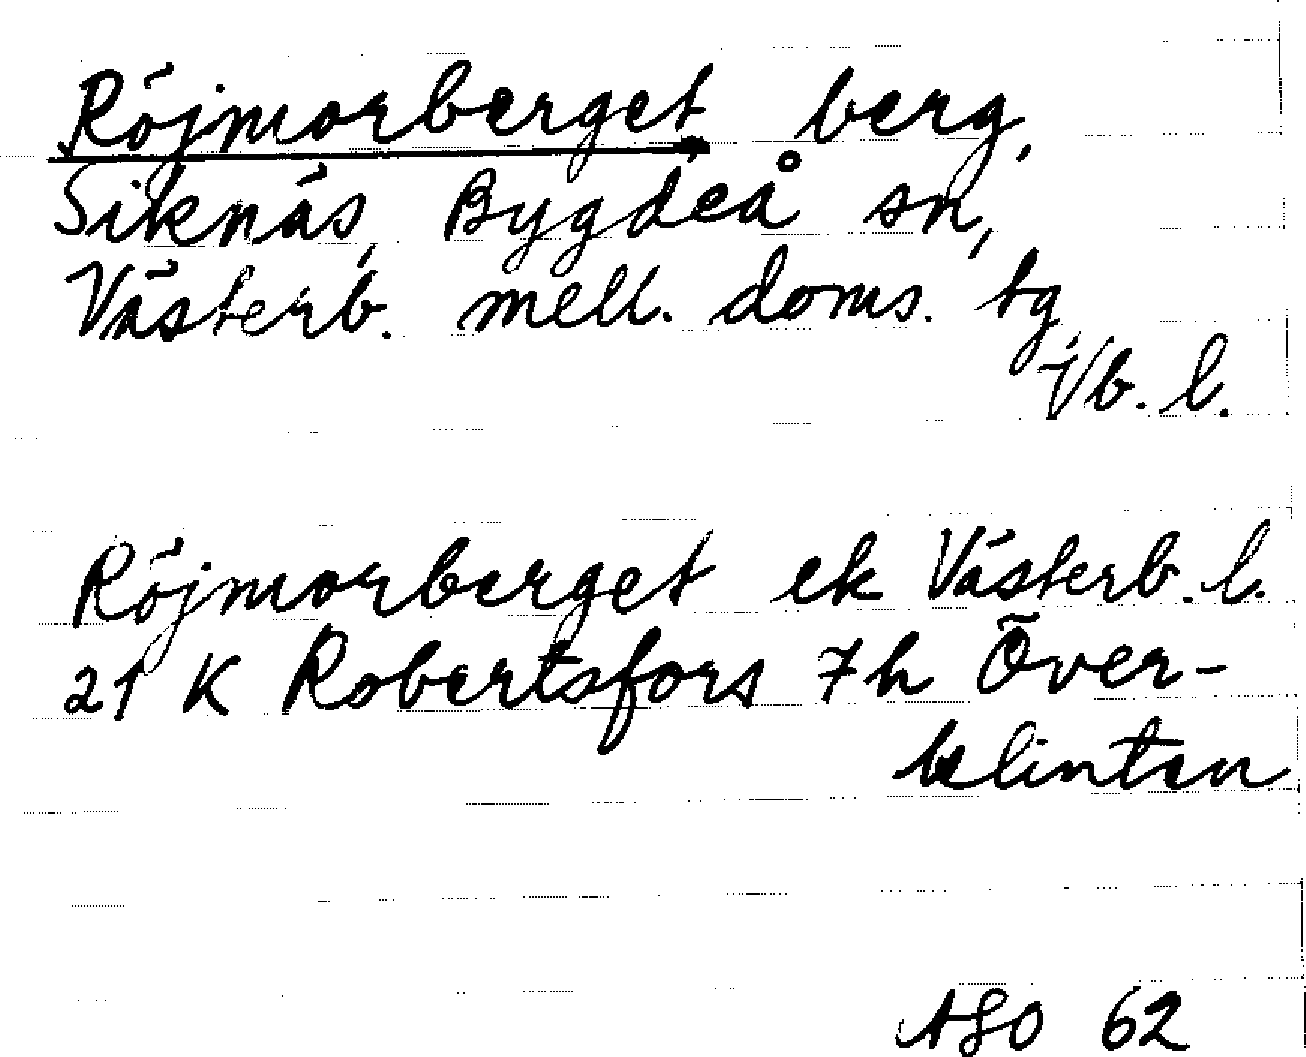 Röjmorberget, berg,
Siknäs, Bygdeå sn,
Västerb. mell. doms. tg,
Vb. l.
Röjmorberget ek Västerb. l.
21 K Robertsfors 7h Över-
klinten
ASO 62